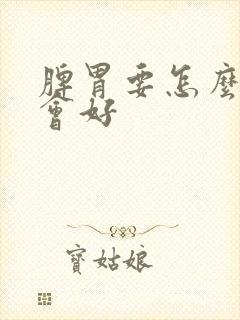 脾胃要怎麼
會好
寶姑娘